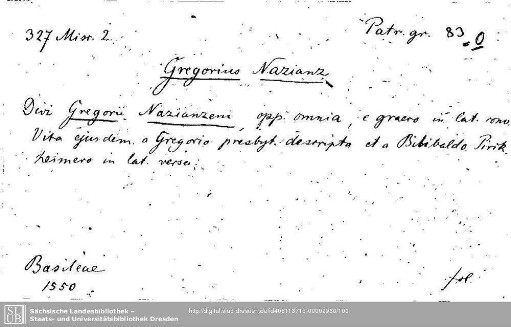 327 Misc. 2
Patr. gr. 83
0
Gregorius Nazianz
Divi Gregorii Nazianzeni, opp. omnia, e graeco in lat. conv.
Vita ejusdem a Gregorio presbyt. descripta et a Bilibaldo Pirk-
heimero in lat. versa.
Basileae
1550
fol.
Sächsische Landesbibliothek –
Staats- und Universitätsbibliothek Dresden